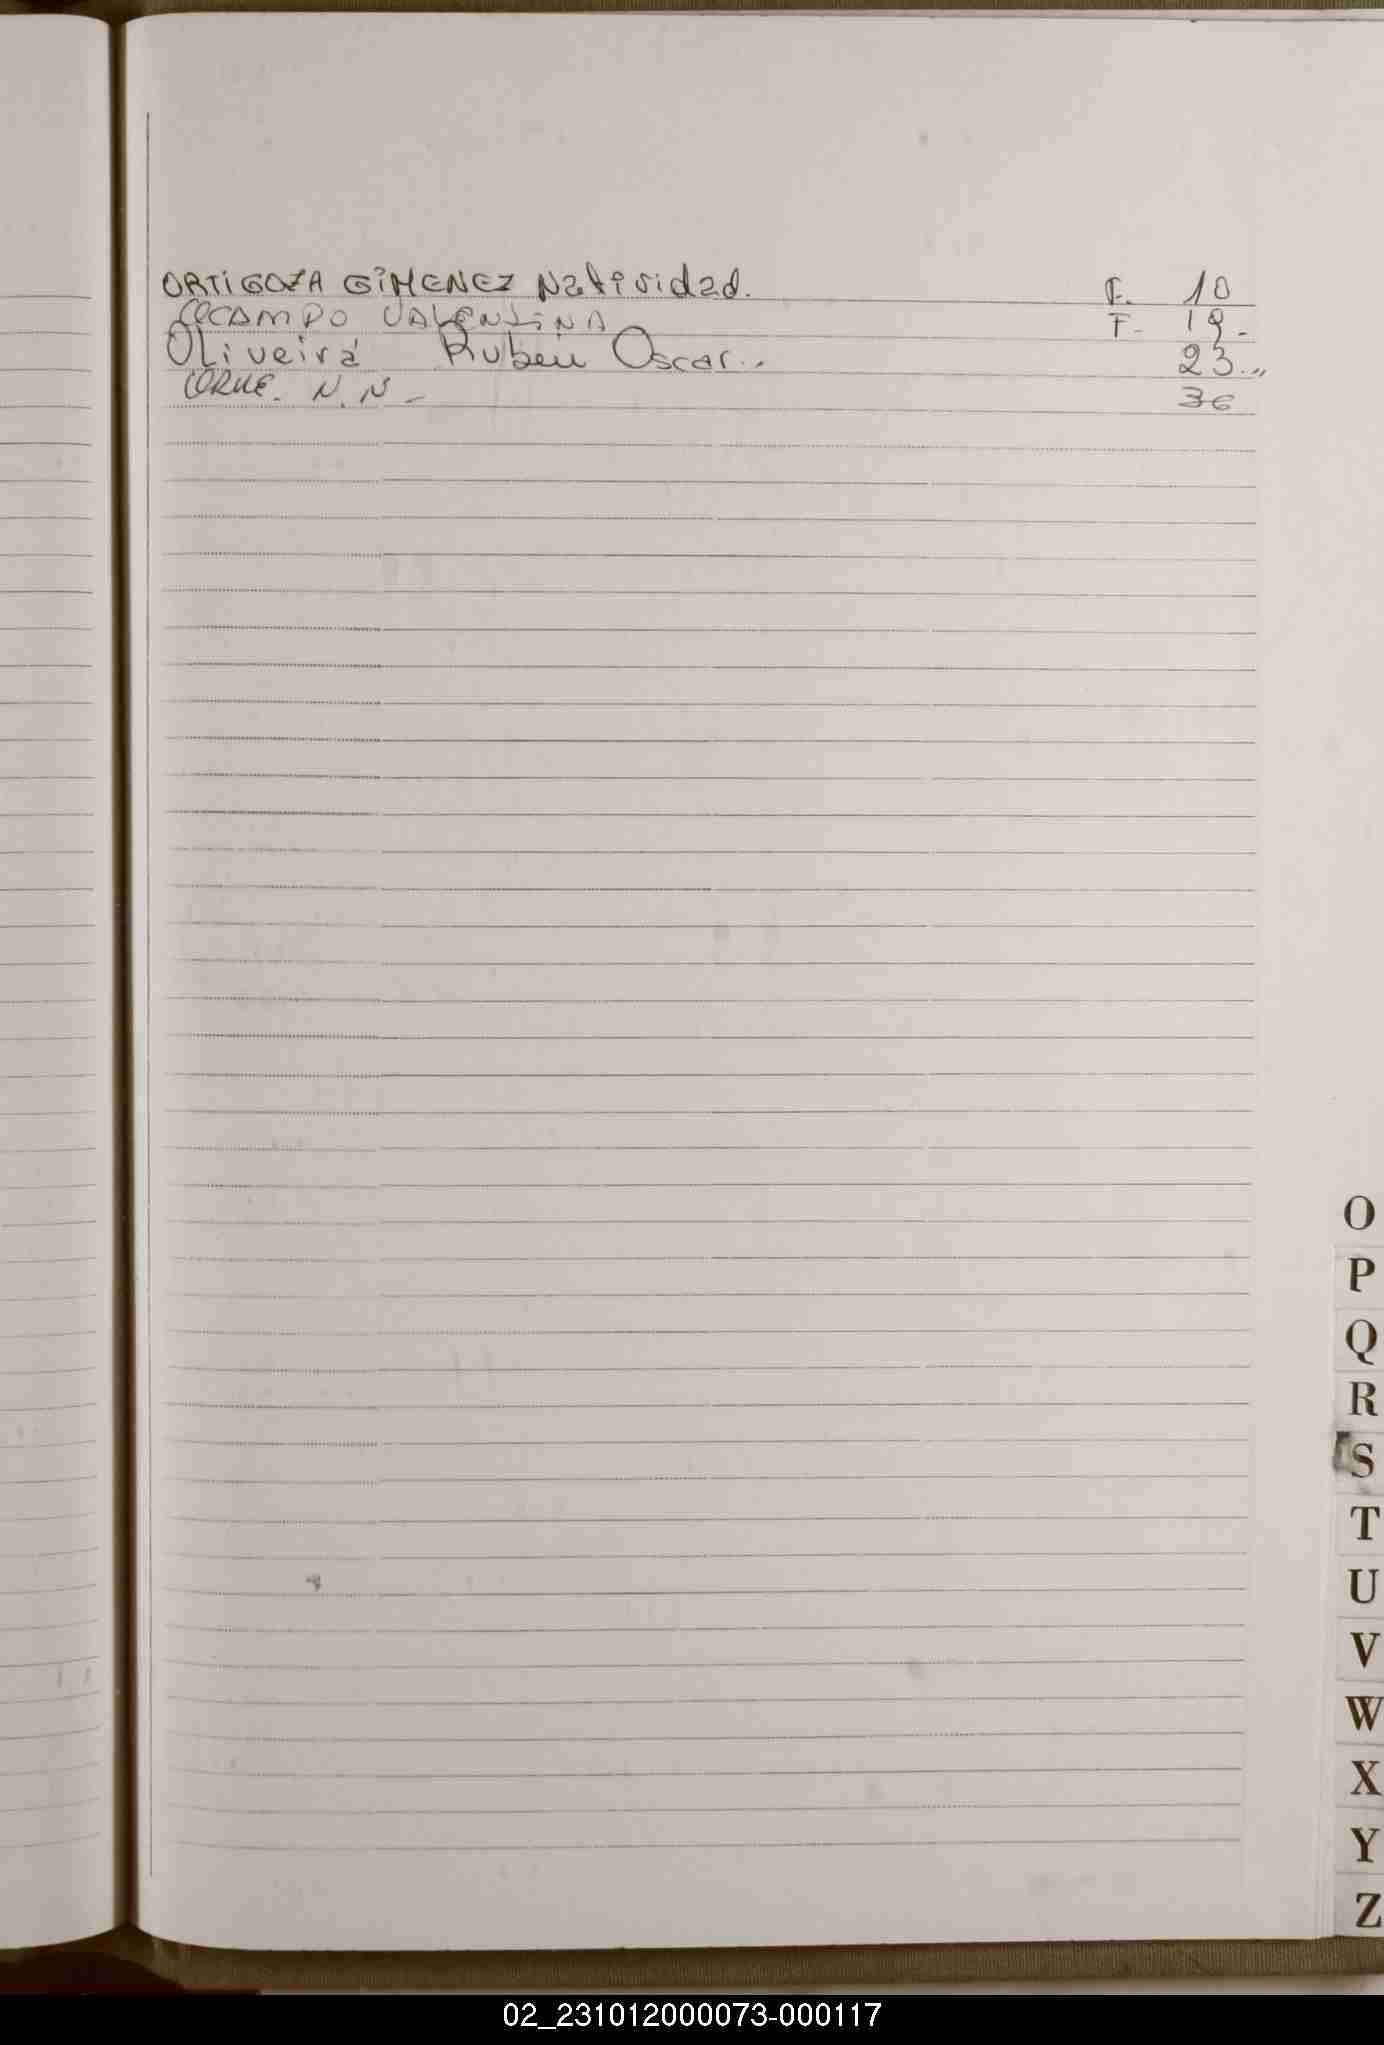 ORTIGOZA GIMENEZ Natividad. F. 10
OCAMPO VALENTINA F- 19-
Oliveira Ruben Oscar.. 23..,,
ORUE. N.N- 36
O
P
Q
R
S
T
U
V
W
X
Y
Z
02_231012000073-000117